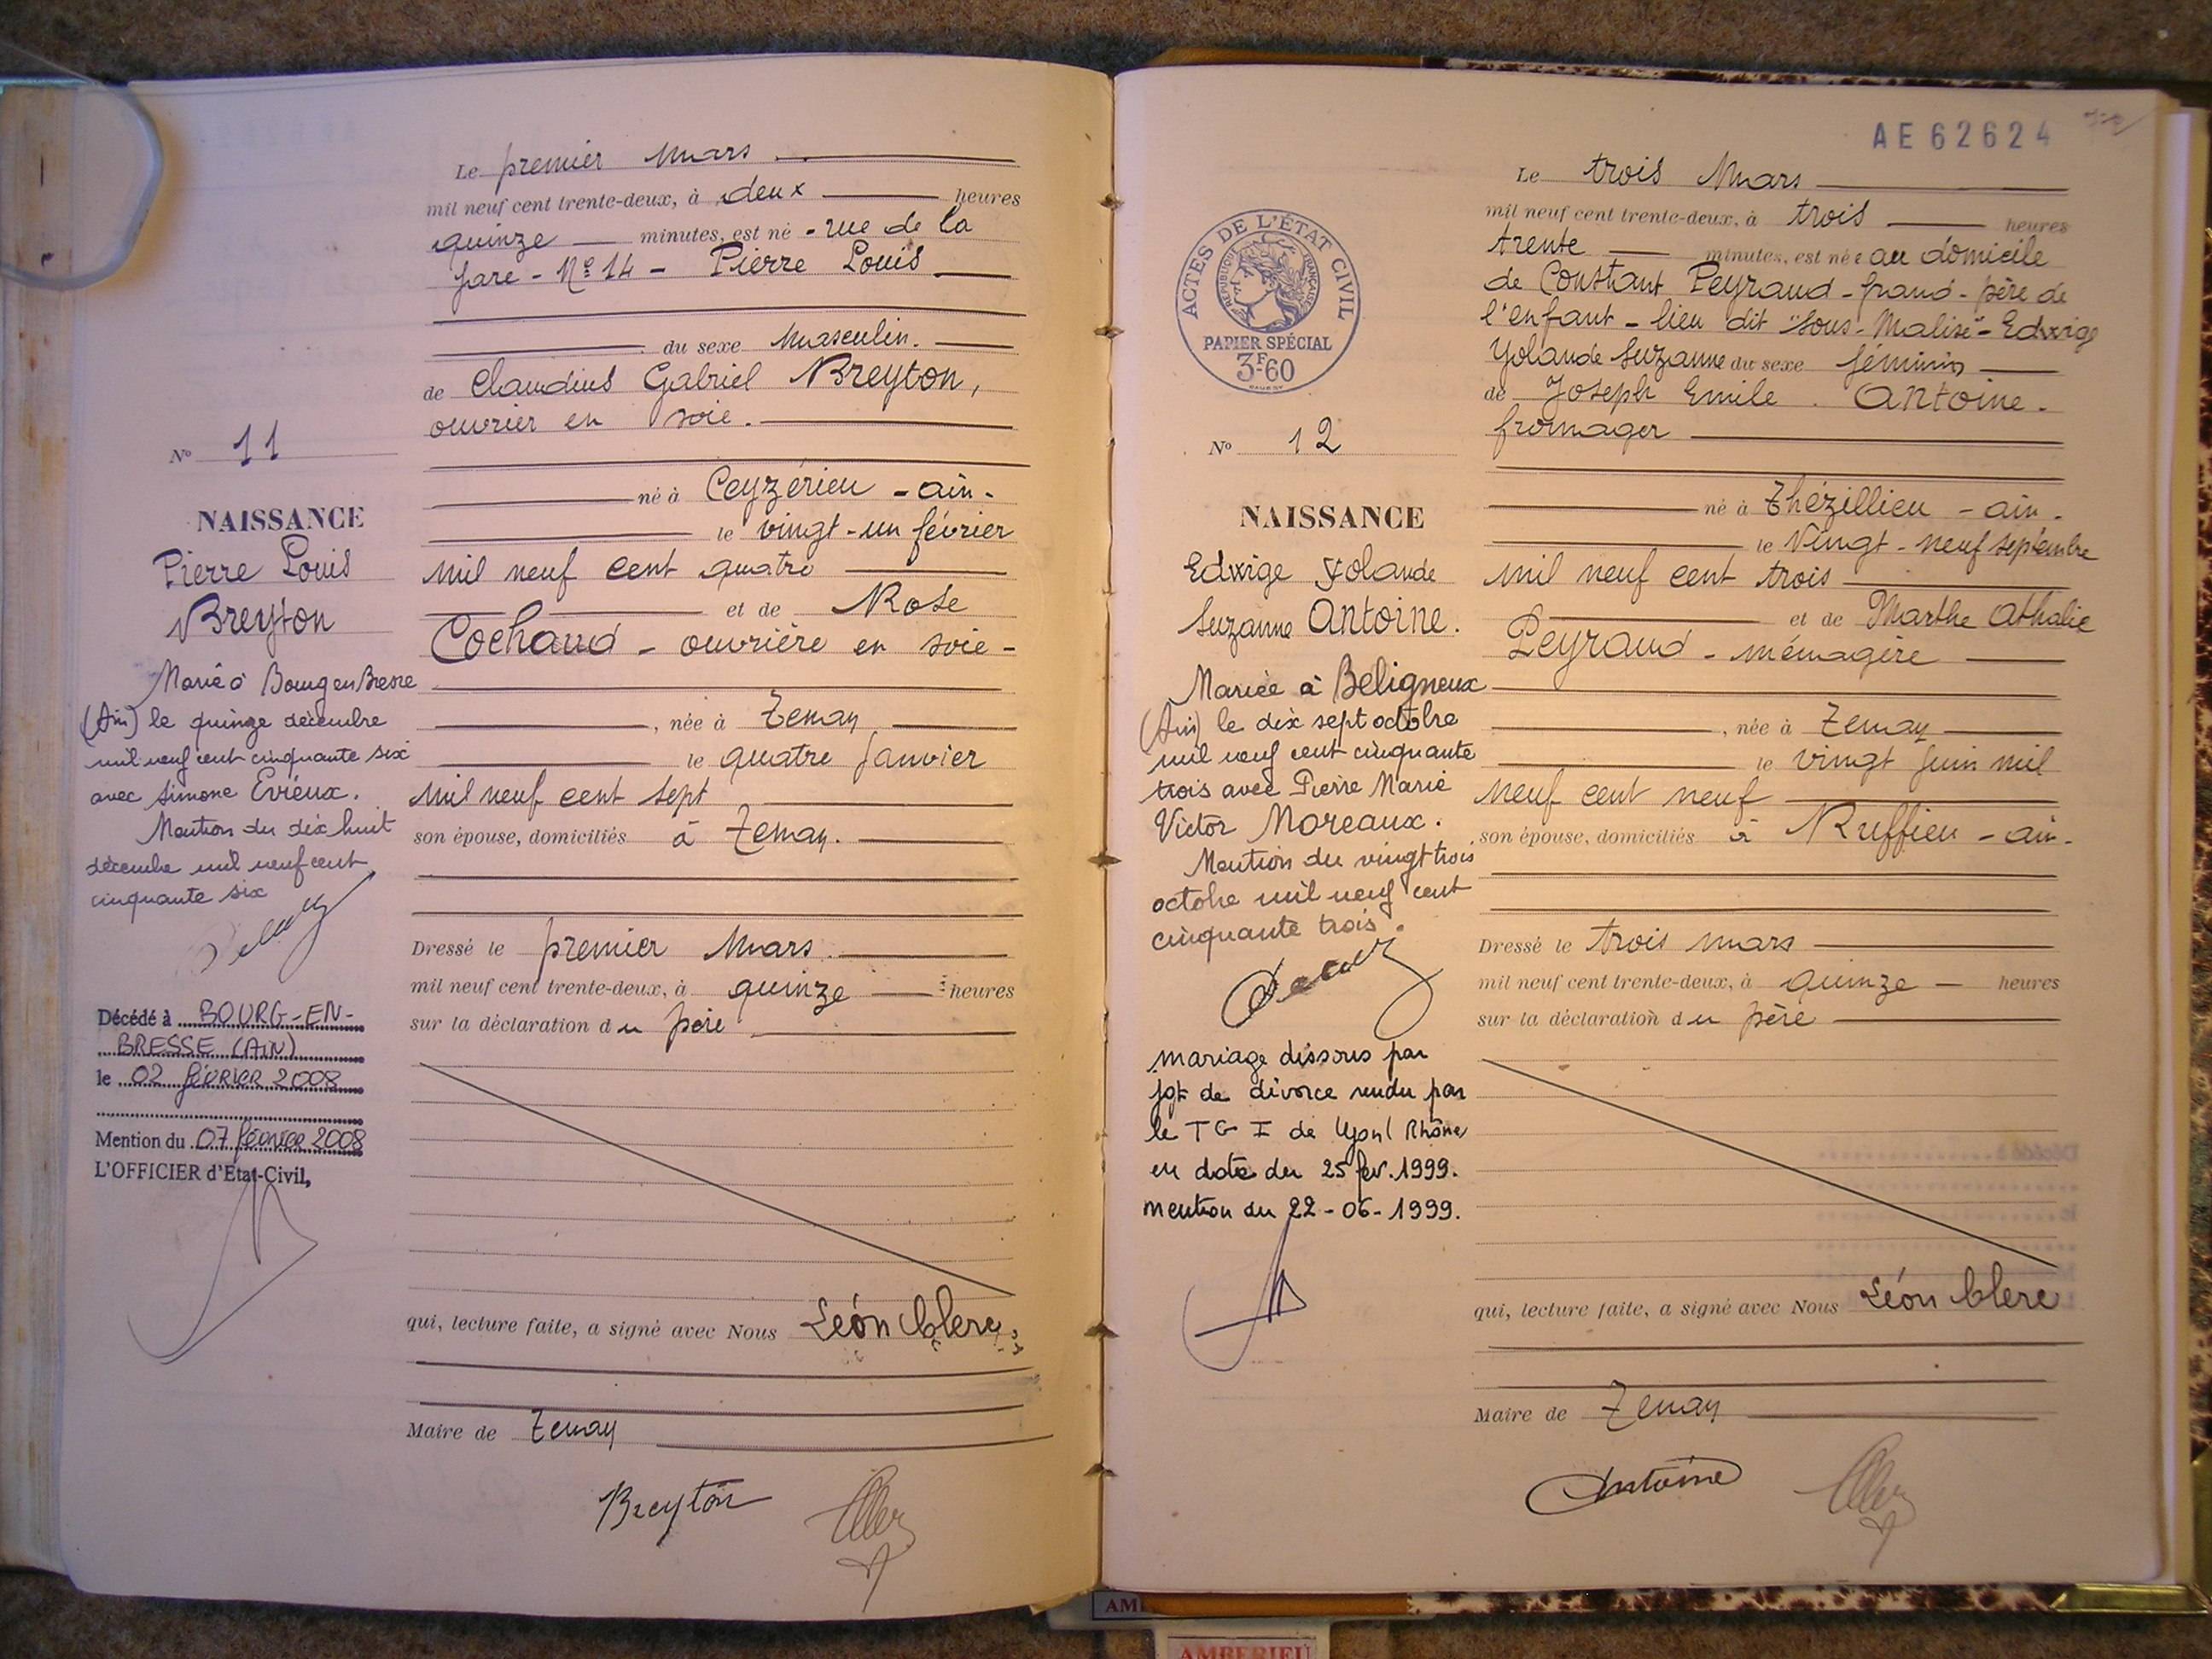 Le premier Mars
mil neuf cent trente-deux, à deux heures
quinze minutes, est né - rue de la
gare - N° 14 - Pierre Louis
du sexe Masculin.
de Claudius Gabriel Breyton,
ouvrier en soie.
né à Ceyzérieu - ain -
le vingt-un février
mil neuf cent quatre
et de Rose
Cochaud - ouvrière en soie -
, née à Tenay
le quatre Janvier
mil neuf cent sept
son épouse, domiciliés à Tenay.
Dressé le premier Mars
mil neuf cent trente-deux, à quinze heures
sur la déclaration du père
qui, lecture faite, a signé avec Nous Léon Clerc
Maire de Tenay
Breyton
N° 11
NAISSANCE
Pierre Louis
Breyton
Marié à Bourg en Bresse
(Ain) le quinze décembre
mil neuf cent cinquante six
avec Simone Evieux.
Mention du dix huit
décembre mil neuf cent
cinquante six
Décédé à BOURG-EN-
BRESSE (AIN)
le 02 février 2008
Mention du 07 février 2008
L'OFFICIER d'Etat-Civil,
AE62624
ACTES DE L'ÉTAT CIVIL
RÉPUBLIQUE FRANÇAISE
PAPIER SPÉCIAL
3F60
N° 12
NAISSANCE
Edwige Yolande
Suzanne Antoine.
Mariée à Beligneux
(Ain) le dix sept octobre
mil neuf cent cinquante
trois avec Pierre Marie
Victor Moreaux.
Mention du vingt trois
octobre mil neuf cent
cinquante trois.
mariage dissous par
jgt de divorce rendu par
le TGI de Lyon (Rhône)
en date du 25 fev. 1999.
mention du 22-06-1999.
Le trois Mars
mil neuf cent trente-deux, à trois heures
trente minutes, est née au domicile
de Constant Peyraud - grand-père de
l'enfant - lieu dit "Sous-Malise" - Edwige
Yolande Suzanne du sexe féminin
de Joseph Emile Antoine.
fromager
né à Thézillieu - ain -
le Vingt-neuf septembre
mil neuf cent trois
et de Marthe Athalie
Peyraud - ménagère
, née à Tenay
le vingt Juin mil
neuf cent neuf
son épouse, domiciliés à Ruffieu - ain -
Dressé le trois mars
mil neuf cent trente-deux, à quinze heures
sur la déclaration du père
qui, lecture faite, a signé avec Nous Léon Clerc
Maire de Tenay
Antoine
AMBERIEU